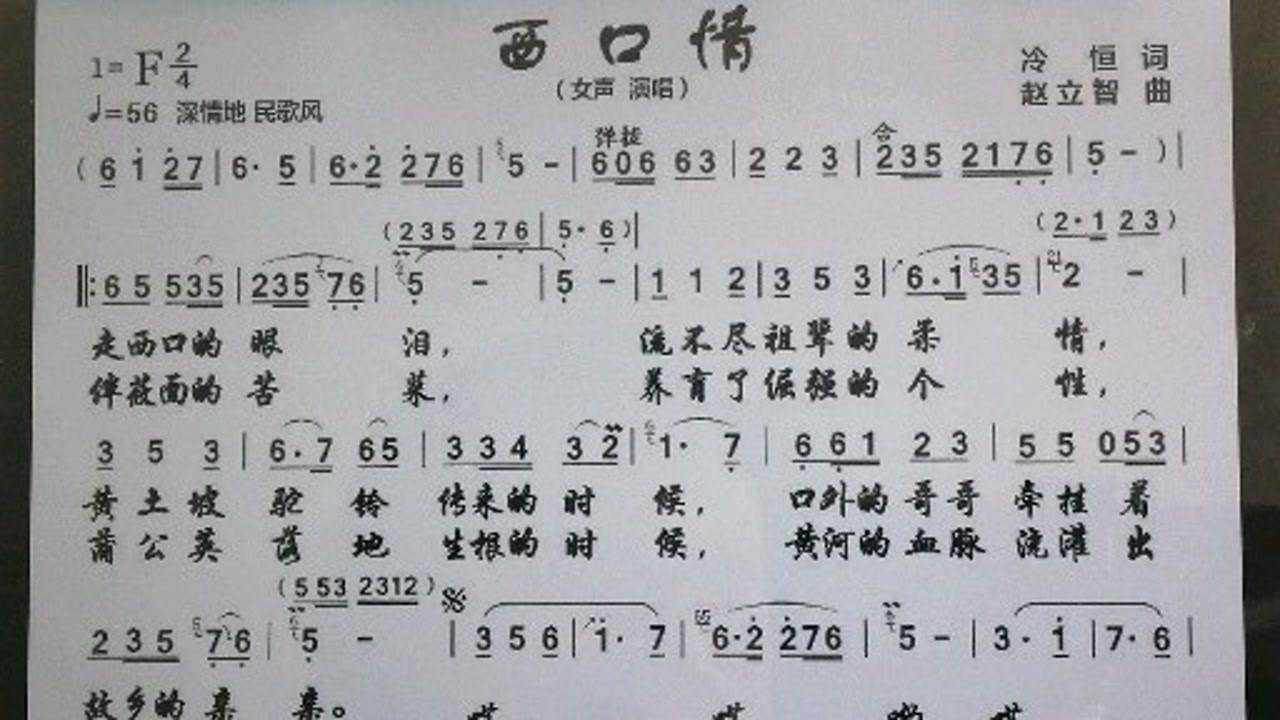 西口情
(女声 演唱)
1=F 2/4
♩=56 深情地 民歌风
冷恒 词
赵立智 曲
弹拨 合
(6 1 27 | 6· 5 | 6·2 276 | 5 - | 606 63 | 2 2 3 | 235 2176 | 5 - ) |
(235 276 | 5· 6) | (2·1 23)
‖: 65 535 | 235 76 | 5 - | 5 - | 1 1 2 | 3 5 3 | 6·1 35 | 2 - |
走西口的 眼 泪, 流不尽祖辈的 柔 情,
伴莜面的 苦 菜, 养育了倔强的 个 性,
3 5 3 | 6·7 65 | 334 32 | 1· 7 | 661 23 | 55 053 |
黄土坡 驼铃 传来的时候, 口外的哥哥 牵挂着
蒲公英 落地 生根的时候, 黄河的血脉 浇灌出
(553 2312)
235 76 | 5 - | 3 5 6 | 1· 7 | 6·2 276 | 5 - | 3· 1 | 7· 6 |
故乡的亲 亲。